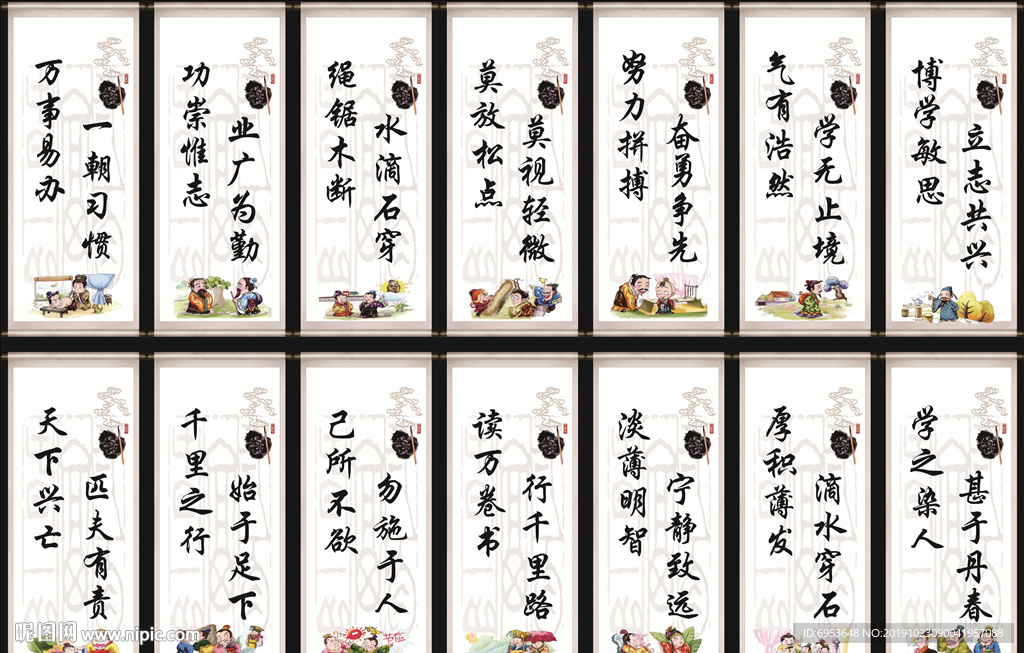 万事易办
一朝习惯
功崇惟志
业广为勤
绳锯木断
水滴石穿
莫放松点
莫视轻微
努力拼搏
奋勇争先
气有浩然
学无止境
博学敏思
立志共兴
天下兴亡
匹夫有责
千里之行
始于足下
己所不欲
勿施于人
读万卷书
行千里路
淡薄明智
宁静致远
厚积薄发
滴水穿石
学之染人
甚于丹春
昵图网 www.nipic.com
ID:6953648 NO:20191023090041957088